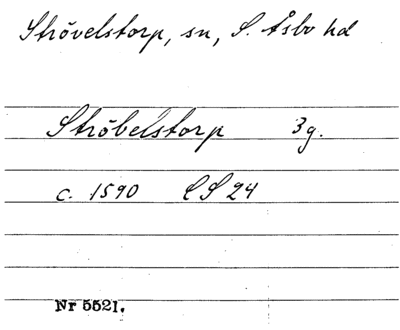 Strövelstorp, sn, S. Åsbo hd
Ströbelstorp 3g.
c. 1590 CS 24
Nr 5521.